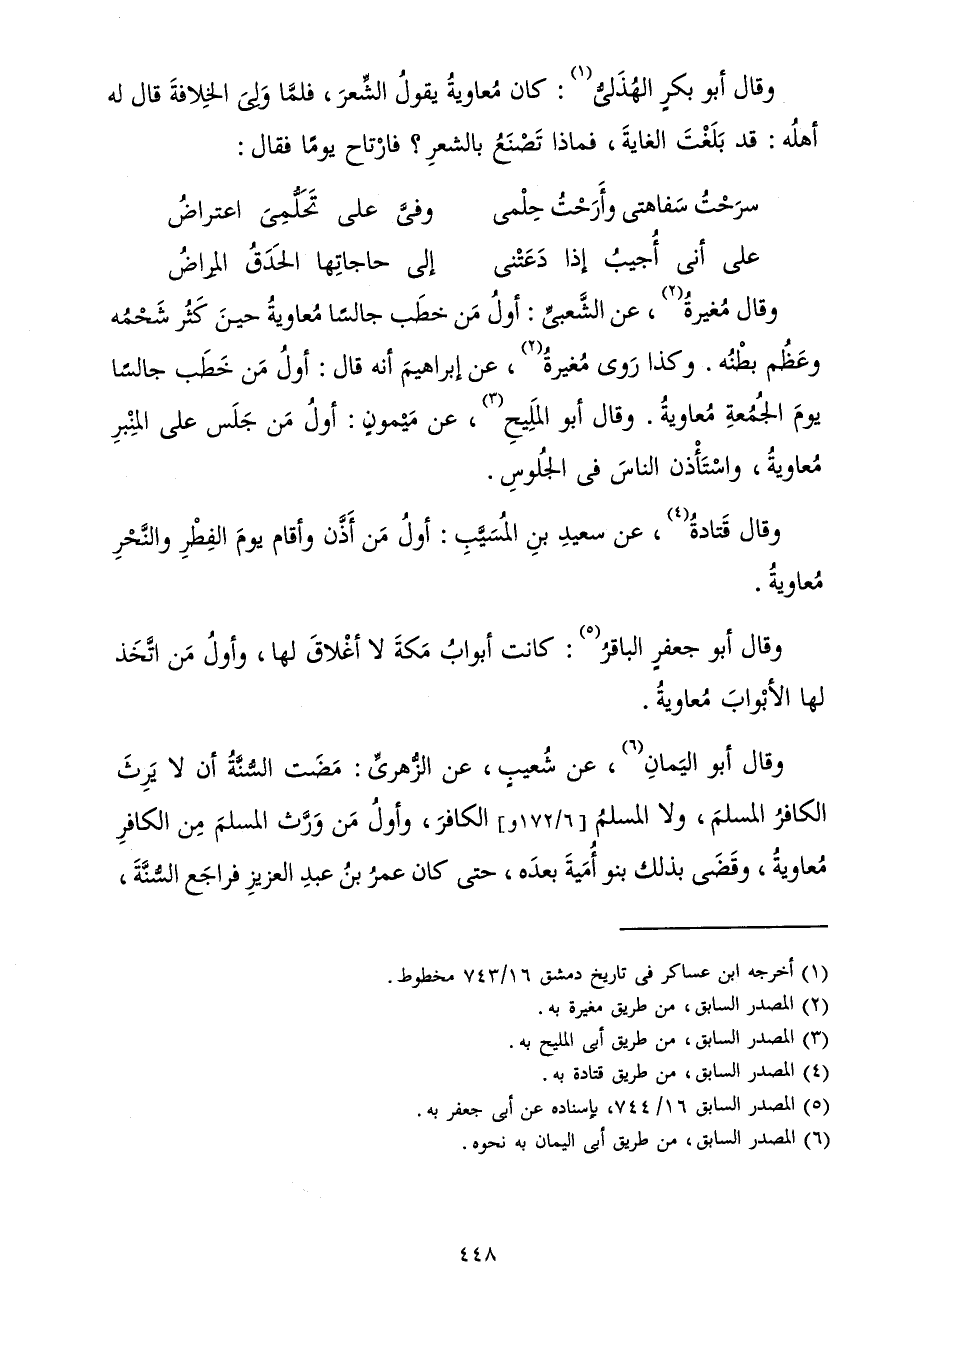 وقال أبو بكرٍ الهُذَلىُّ(١) : كان مُعاويةُ يقولُ الشِّعرَ ، فلمَّا وَلِىَ الخِلافةَ قال له
أهلُه : قد بَلَغْتَ الغايةَ ، فماذا تَصْنَعُ بالشعرِ ؟ فارْتاح يومًا فقال :
سرَحْتُ سَفاهتى وأَرَحْتُ حِلْمى    وفىَّ على تَحَلُّمِىَ اعتراضُ
على أنى أُجيبُ إذا دَعَتْنى    إلى حاجاتِها الحَدَقُ المِراضُ
وقال مُغيرةُ(٢) ، عن الشَّعبىِّ : أولُ مَن خطَب جالسًا مُعاويةُ حينَ كَثُر شَحْمُه
وعَظُم بطْنُه . وكذا رَوى مُغيرةُ(٢) ، عن إبراهيمَ أنه قال : أولُ مَن خَطَب جالسًا
يومَ الجُمُعةِ مُعاويةُ . وقال أبو المَلِيحِ(٣) ، عن مَيْمونٍ : أولُ مَن جَلَس على المِنْبرِ
مُعاويةُ ، واسْتَأْذن الناسَ فى الجُلوسِ .
وقال قَتادةُ(٤) ، عن سعيدِ بنِ المُسَيَّبِ : أولُ مَن أَذَّن وأقام يومَ الفِطْرِ والنَّحْرِ
مُعاويةُ .
وقال أبو جعفرٍ الباقرُ(٥) : كانت أبوابُ مكةَ لا أغْلاقَ لها ، وأولُ مَن اتَّخَذ
لها الأبْوابَ مُعاويةُ .
وقال أبو اليَمانِ(٦) ، عن شُعيبٍ ، عن الزُّهرىِّ : مَضَت السُّنَّةُ أن لا يَرِثَ
الكافرُ المسلمَ ، ولا المسلمُ [١٧٢/٦و] الكافرَ ، وأولُ مَن وَرَّث المسلمَ مِن الكافرِ
مُعاويةُ ، وقَضَى بذلك بنو أُمَيةَ بعدَه ، حتى كان عمرُ بنُ عبدِ العزيزِ فراجَع السُّنَّةَ ،
(١) أخرجه ابن عساكر فى تاريخ دمشق ٧٤٣/١٦ مخطوط .
(٢) المصدر السابق ، من طريق مغيرة به .
(٣) المصدر السابق ، من طريق أبى المليح به .
(٤) المصدر السابق ، من طريق قتادة به .
(٥) المصدر السابق ٧٤٤/١٦، بإسناده عن أبى جعفر به .
(٦) المصدر السابق ، من طريق أبى اليمان به نحوه .
٤٤٨